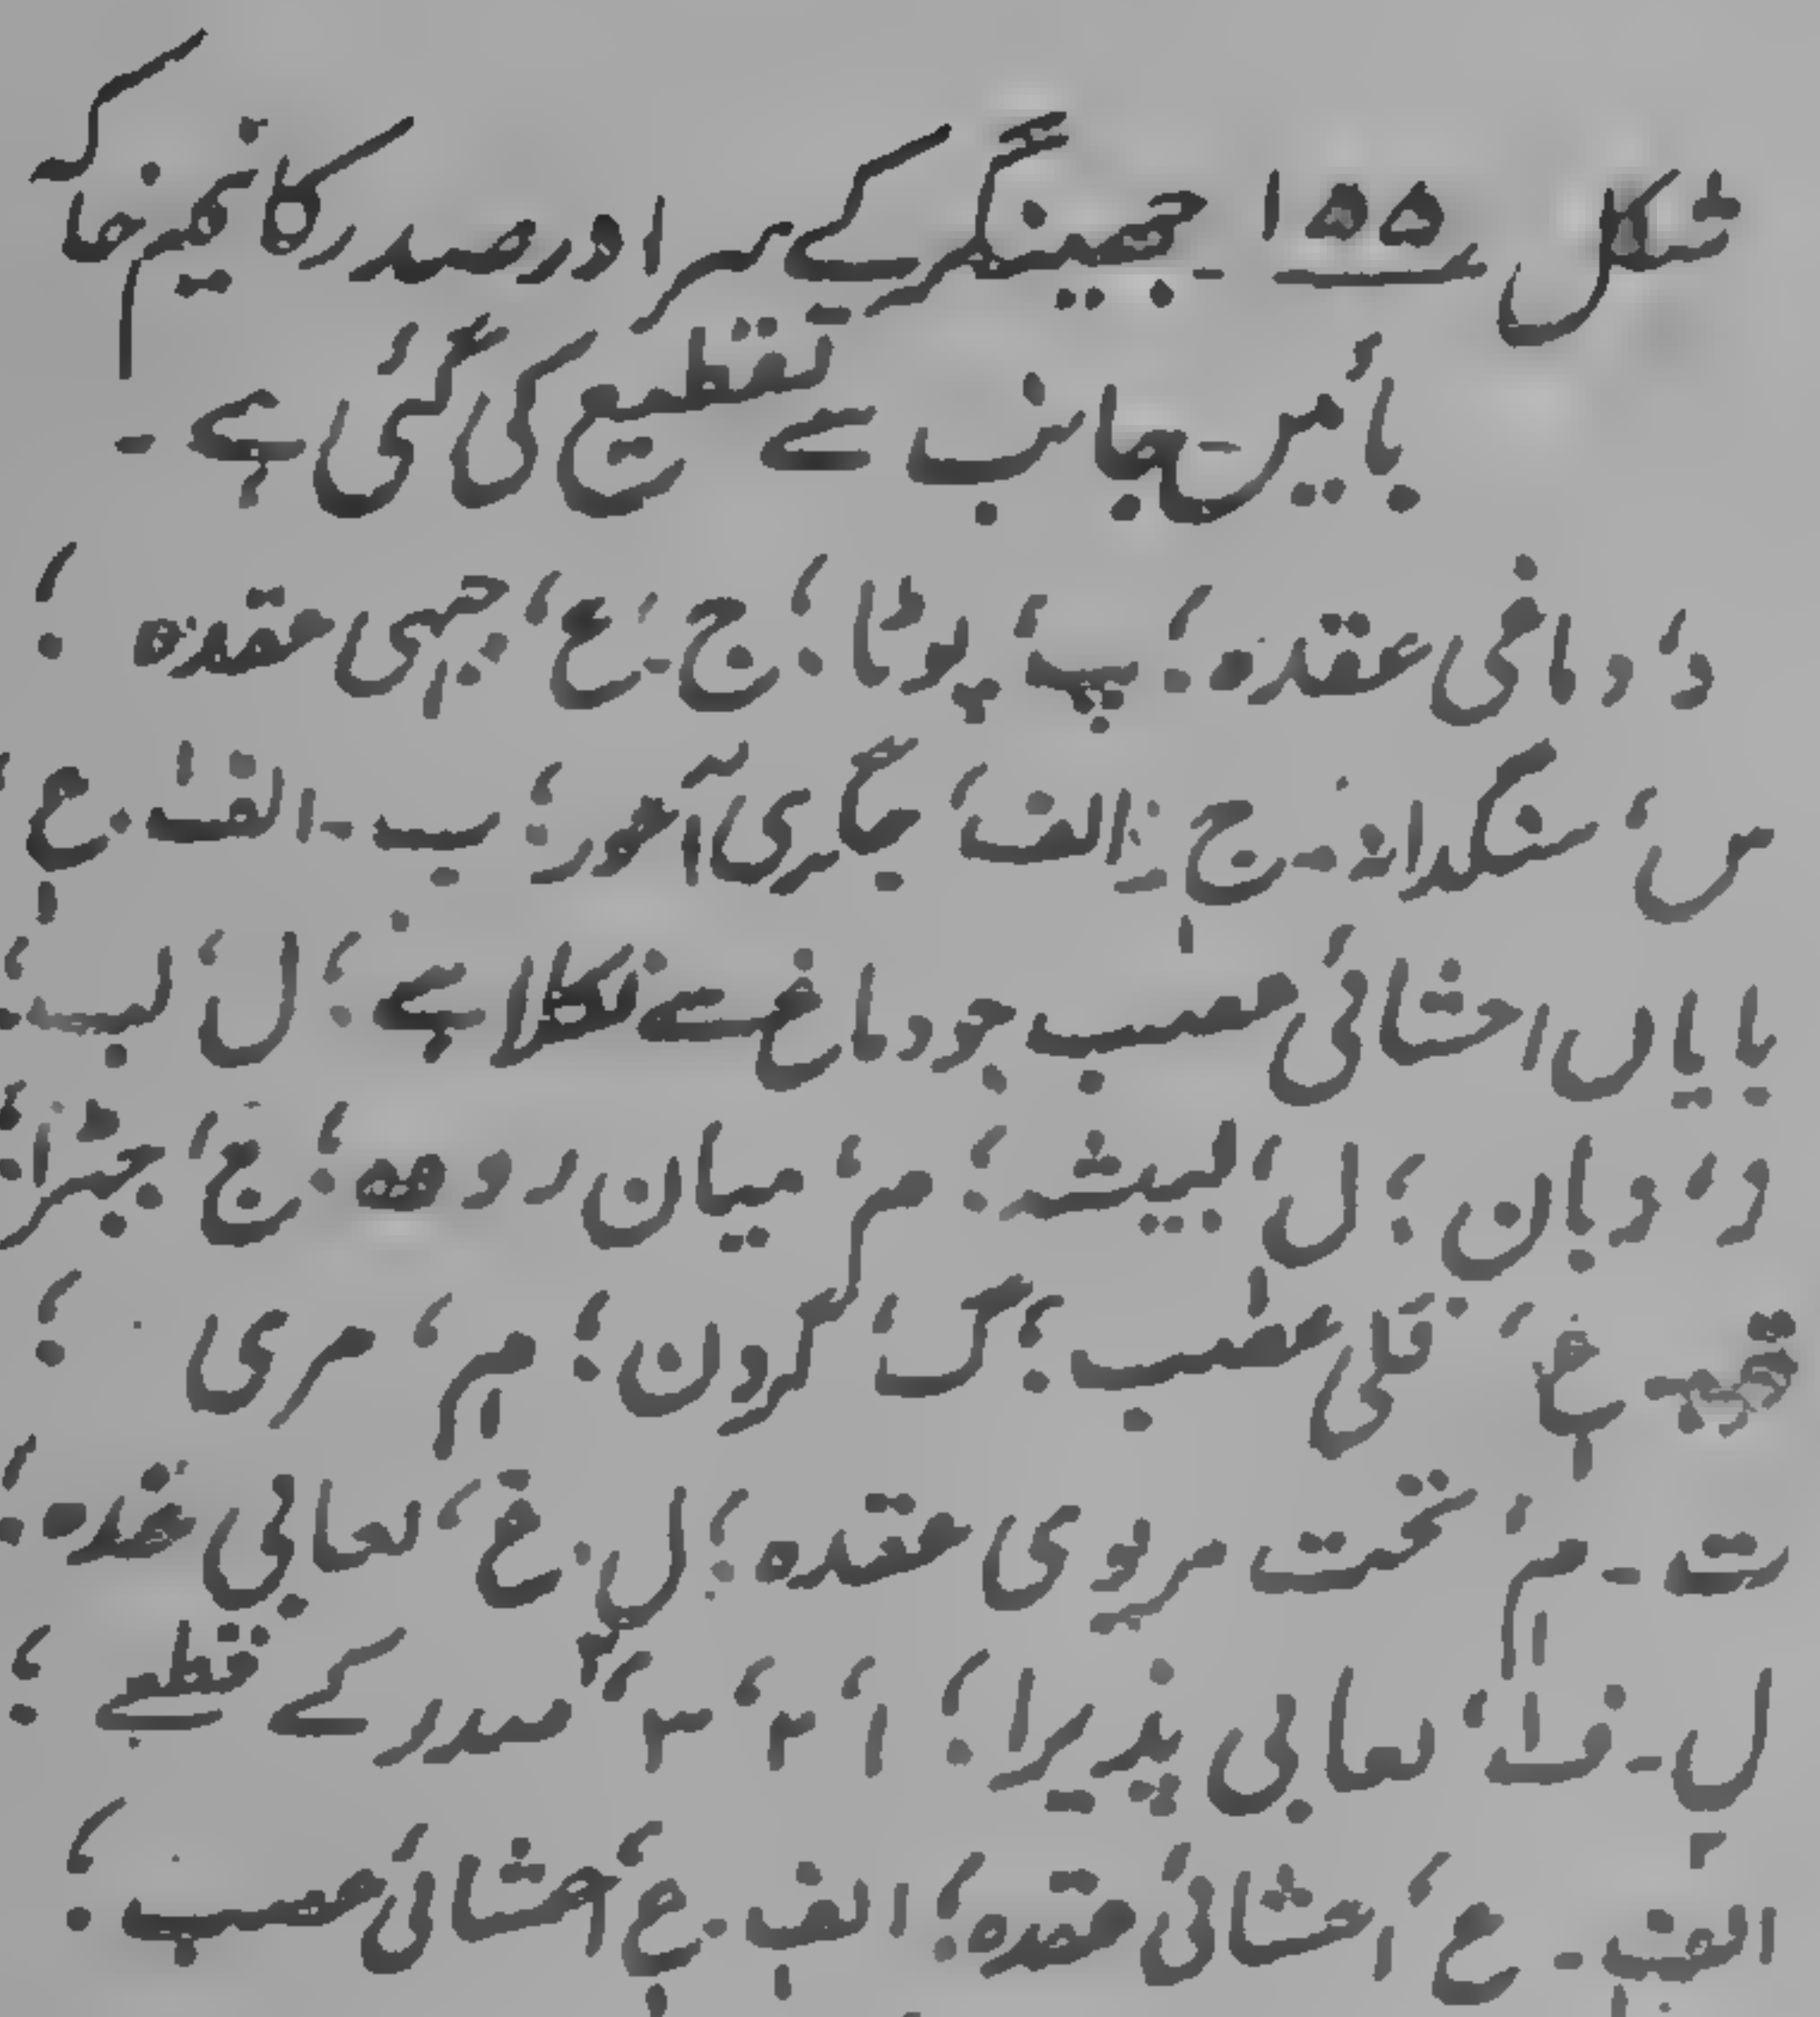 شکل ۱۵۵ جھینگر کے سر اور صدر کا نیم خاکہ
بائیں جانب سے تقطیع کی گئی ہے ۔
د، دماغی عقدہ ؛ پ، پوٹا ؛ ج ۔ ع، جبہی عقدہ ؛
س، سنگدانہ ۔ ج ز الف، جگری آعور ؛ ب ۔ الف ۔ ع
بایاں احشائی عصب جو دماغ سے نکلا ہے ؛ ل، لب ؛
د، دہان ؛ ل، لیشہ ؛ م، میان رودہ ؛ ج، جبڑا ؛
ع، قلبی عصب ؛ گ، گردن ؛ م، مری ؛
ت ۔ م، تحت مروی عقدہ ؛ ل ۔ غ، لعابی غدہ ؛
ل ۔ ف، لعابی پذیرا ؛ ۱، ۲، ۳، صدر کے قطعے ؛
الف ۔ ع، احشائی عقدہ ؛ الف ۔ ع، احشائی عصب ؛